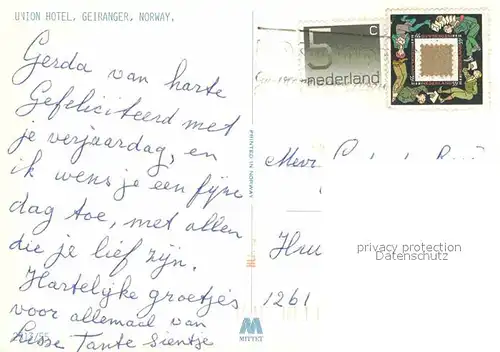 UNION HOTEL, GEIRANGER, NORWAY.
Gerda van harte
Gefeliciteerd met
je verjaardag, en
ik wens je een fijne
dag toe, met allen
die je lief zijn.
Hartelijke groetjes
voor allemaal van
Tante Sientje
PRINTED IN NORWAY
MITTET
5 c
nederland
Mevr
1261
privacy protection
Datenschutz